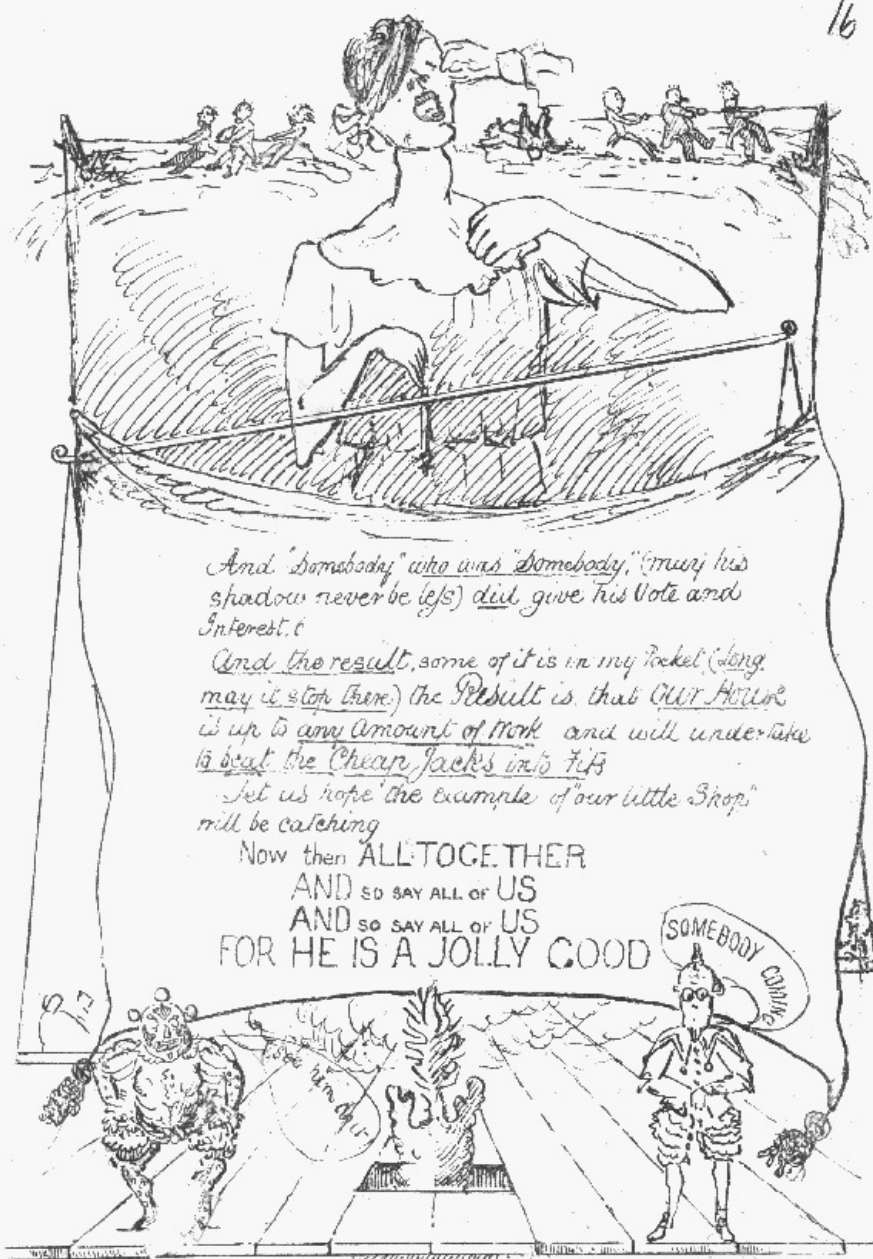 16
And "Somebody" who was "Somebody," (may his
shadow never be less) did give his Vote and
Interest.
And the result, some of it is in my Pocket (long
may it stop there) the Result is, that Our House
is up to any Amount of Work and will undertake
to beat the Cheap Jacks into Fits
Let us hope the example of "our little Shop"
will be catching
Now then ALL TOGETHER
AND SO SAY ALL OF US
AND SO SAY ALL OF US
FOR HE IS A JOLLY GOOD
SOMEBODY COMING